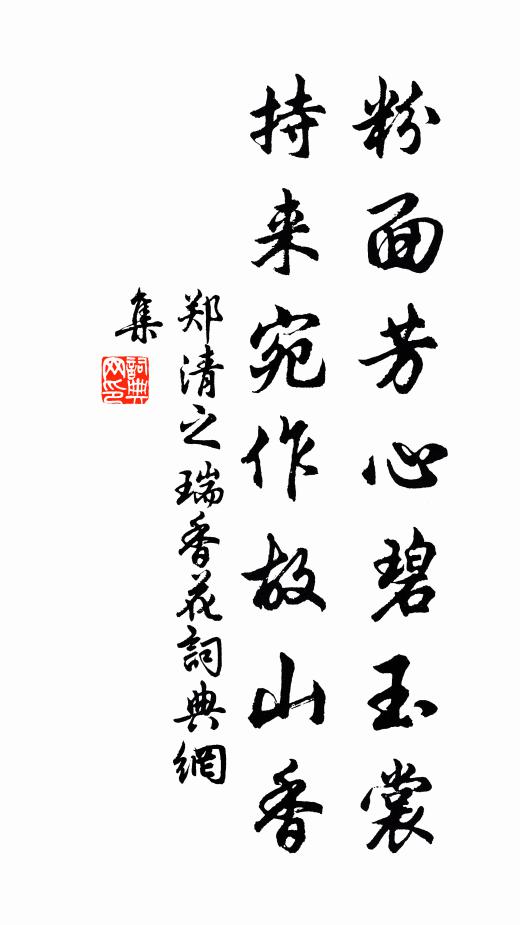 粉面芳心碧玉裳
持来宛作故山香
郑清之瑞香花詞典網
集
詞典
网印